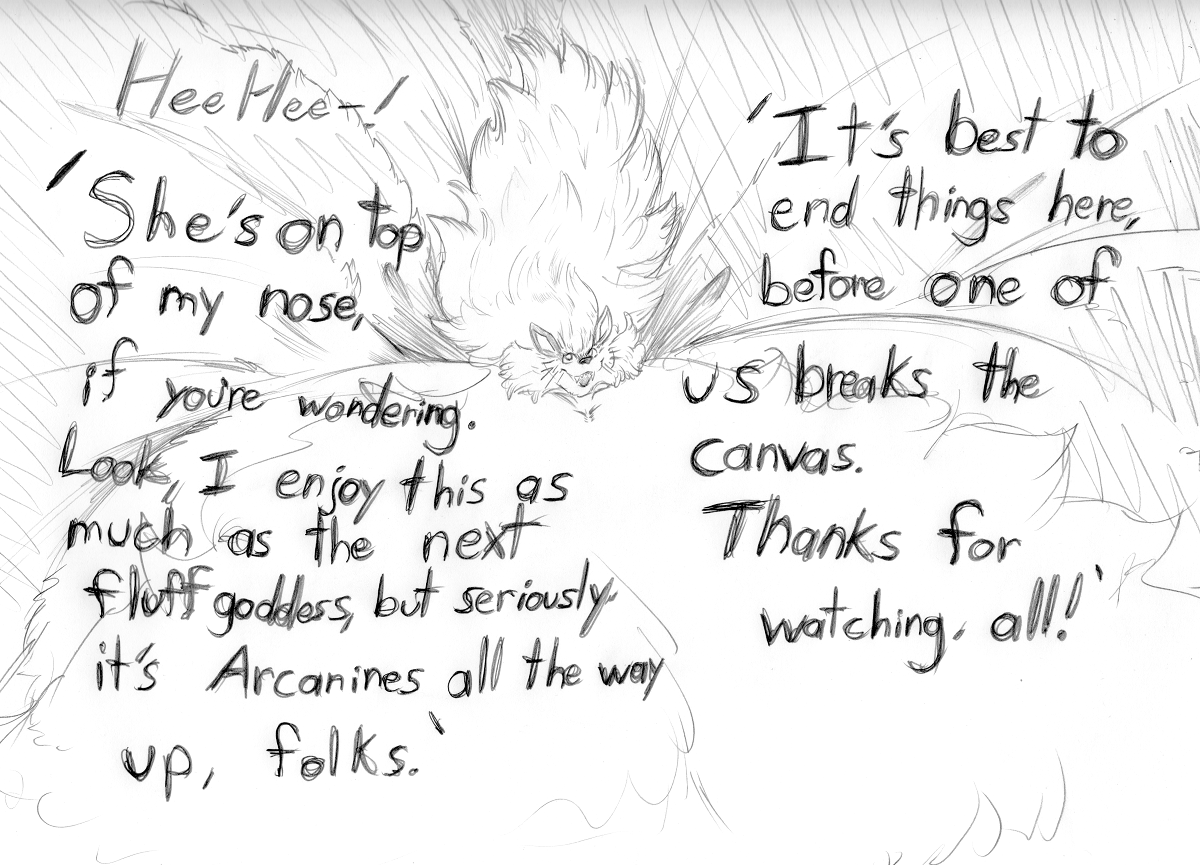 Hee Hee~!
'She's on top
of my nose,
if you're wondering.
Look, I enjoy this as
much as the next
fluff goddess, but seriously,
it's Arcanines all the way
up, folks.'
'It's best to
end things here,
before one of
us breaks the
canvas.
Thanks for
watching, all!'